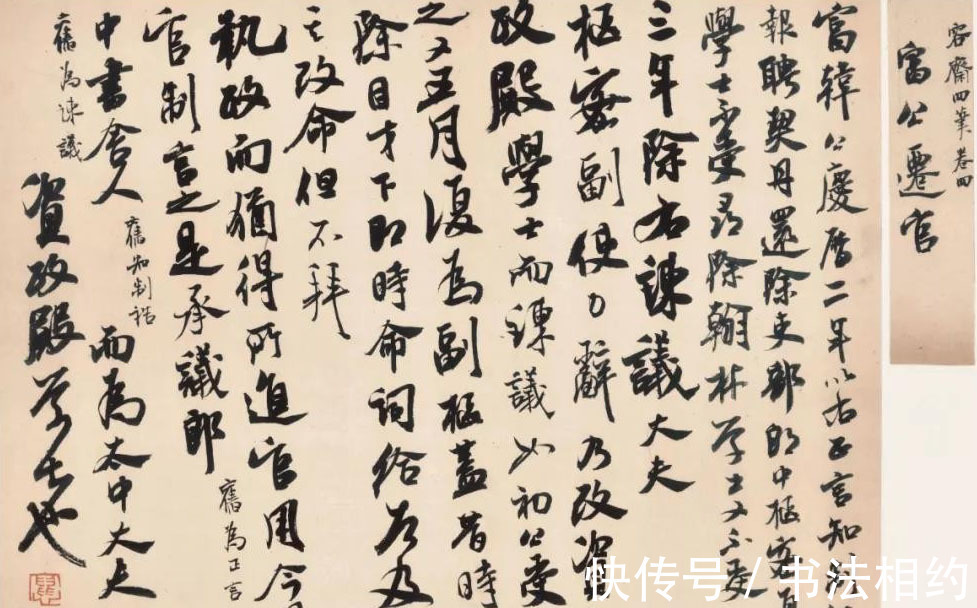 容齋四筆卷四
富公遷官
富韓公慶曆二年以右正言知
報聘契丹還除吏部郎中樞密直
學士不受尋除翰林學士又不受
三年除右諫議大夫
樞密副使力辭乃改資
政殿學士而諫議如初公受
之又五月復為副樞蓋昔時
除目才下即時命詞給告及
其改命但不拜
執政而猶得所進官用今
官制言之是承議郎
舊為正言
中書舍人
舊知制誥
而為太中大夫
舊為諫議
資政殿學士也
快传号 / 书法相约